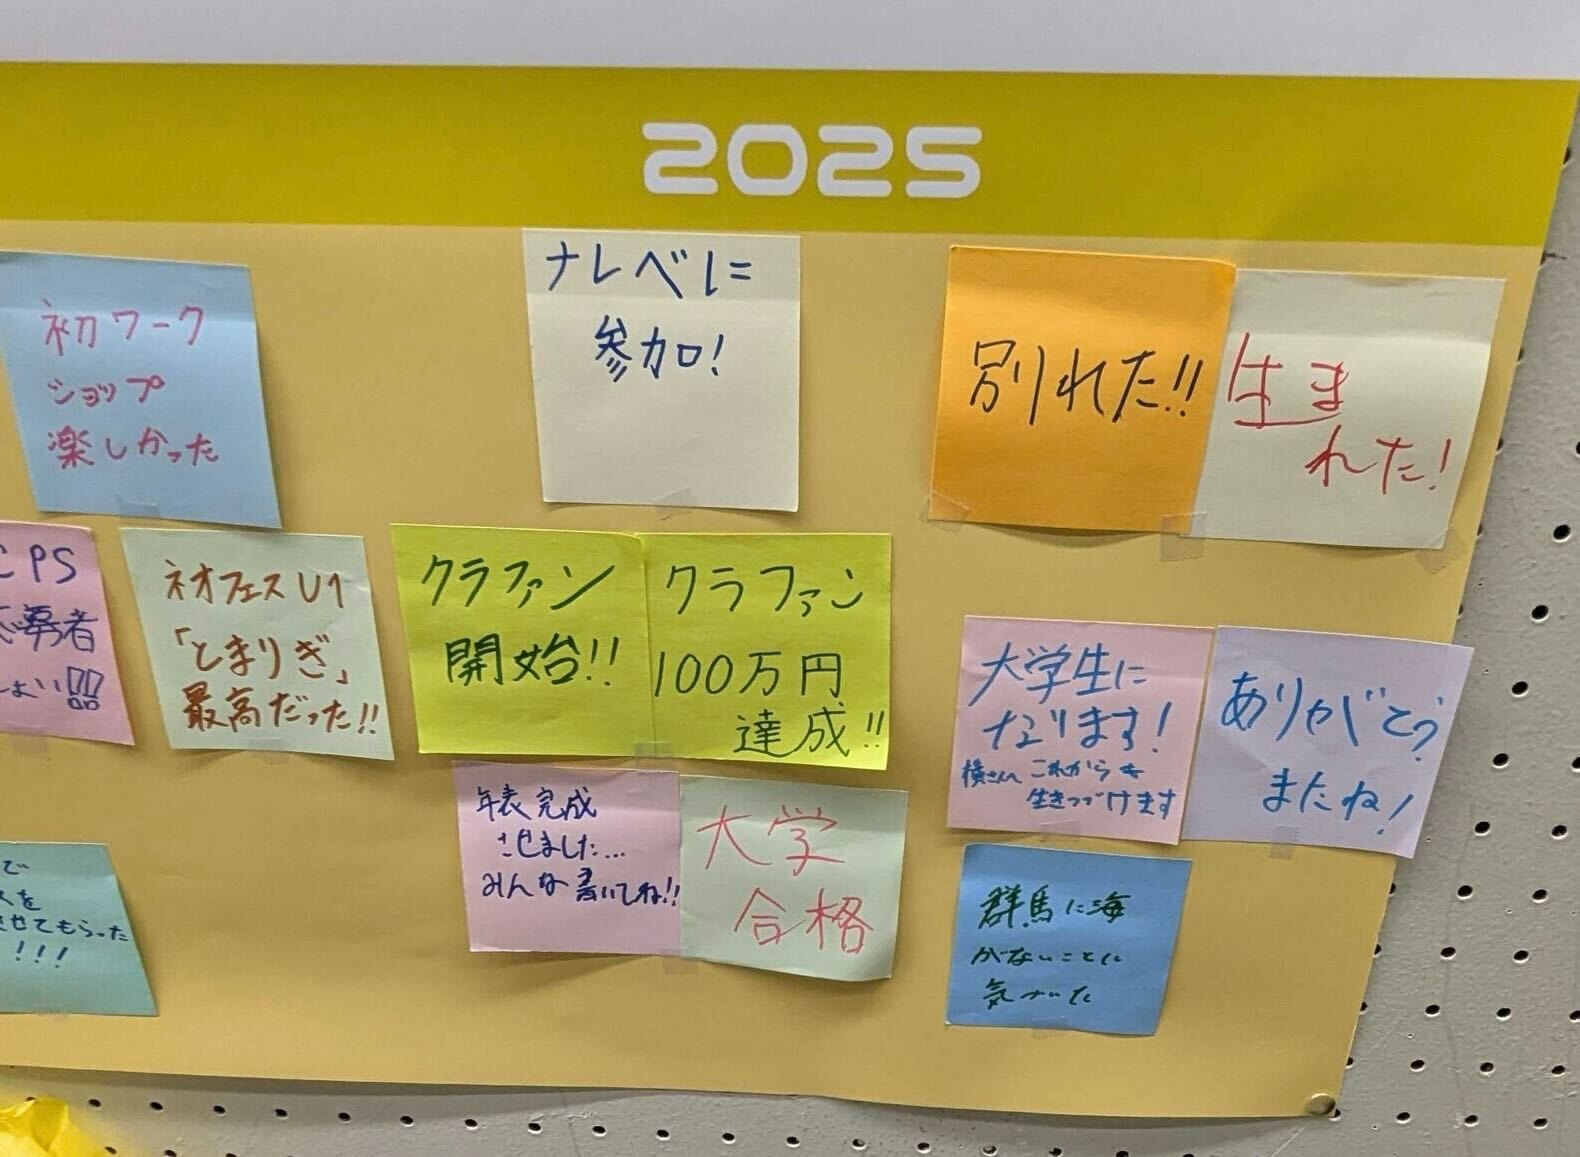 2025
初ワーク
ショップ
楽しかった
ナレベに
参加!
別れた!!
生ま
れた!
CPS
勇者
ネオフェス U1
「とまりぎ」
最高だった!!
クラファン
開始!!
クラファン
100万円
達成!!
大学生に
なります!
横さんへ これからも
生きつづけます
ありがとう
またね!
年表完成
させました…
みんな書いてね!!
大学
合格
で
スを
させてもらった
!!!
群馬に海
がないことに
気づいた